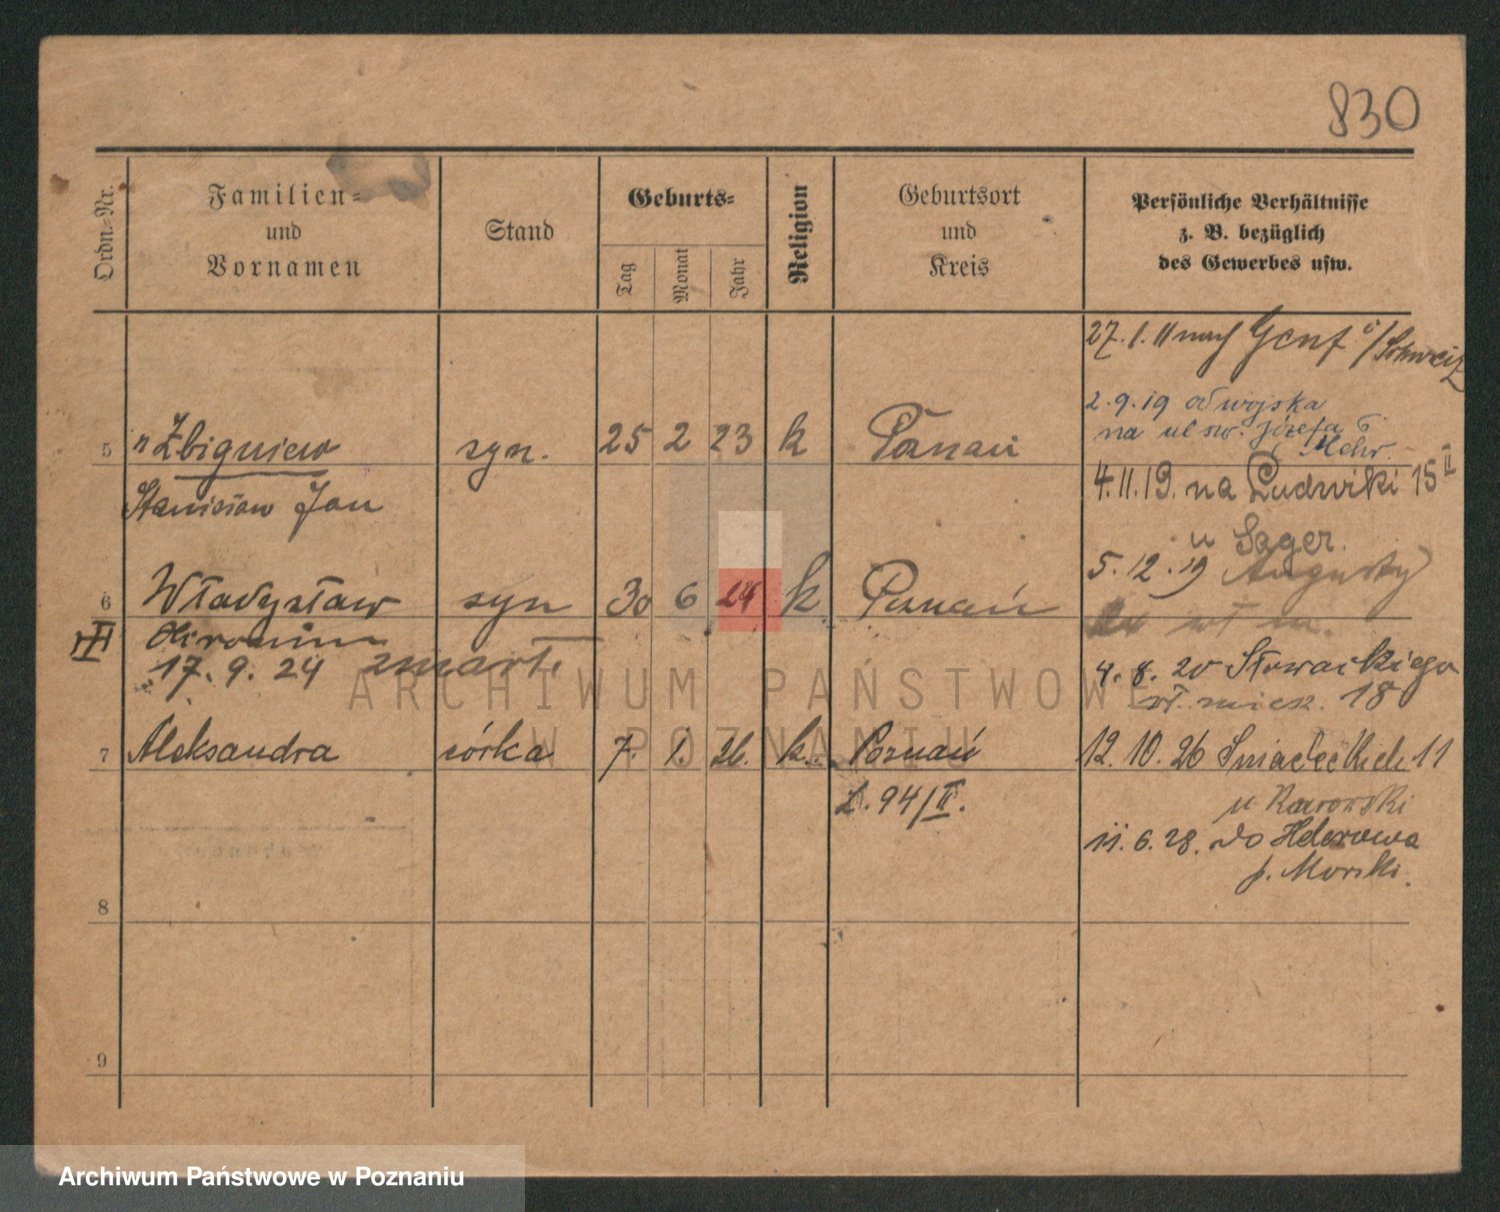 830
Ordn.-Nr.
Familien-
und
Vornamen
Stand
Geburts-
Tag
Monat
Jahr
Religion
Geburtsort
und
Kreis
Persönliche Verhältnisse
z. B. bezüglich
des Gewerbes usw.
27. 1. 11 nach Genf i/Schweiz
2. 9. 19 od wojska
na ul św. Józefa 6
5 " Zbigniew syn. 25 2 23 k Poznań
Stanisław Jan
4. 11. 19. na Ludwiki 15 II
u Sager.
5. 12. 19 Augusty
6 Władysław syn 30 6 24 k Poznań
Hieronim
17. 9. 24 zmarł.
4. 8. 20 Słowackiego
wł. miesz. 18
7 Aleksandra córka 7. 1. 26. k. Poznań
12. 10. 26 Śniadeckich 11
L. 94/II.
u
11. 6. 28. do
p. Morski.
8
9
ARCHIWUM PAŃSTWOWE
W POZNANIU
Archiwum Państwowe w Poznaniu